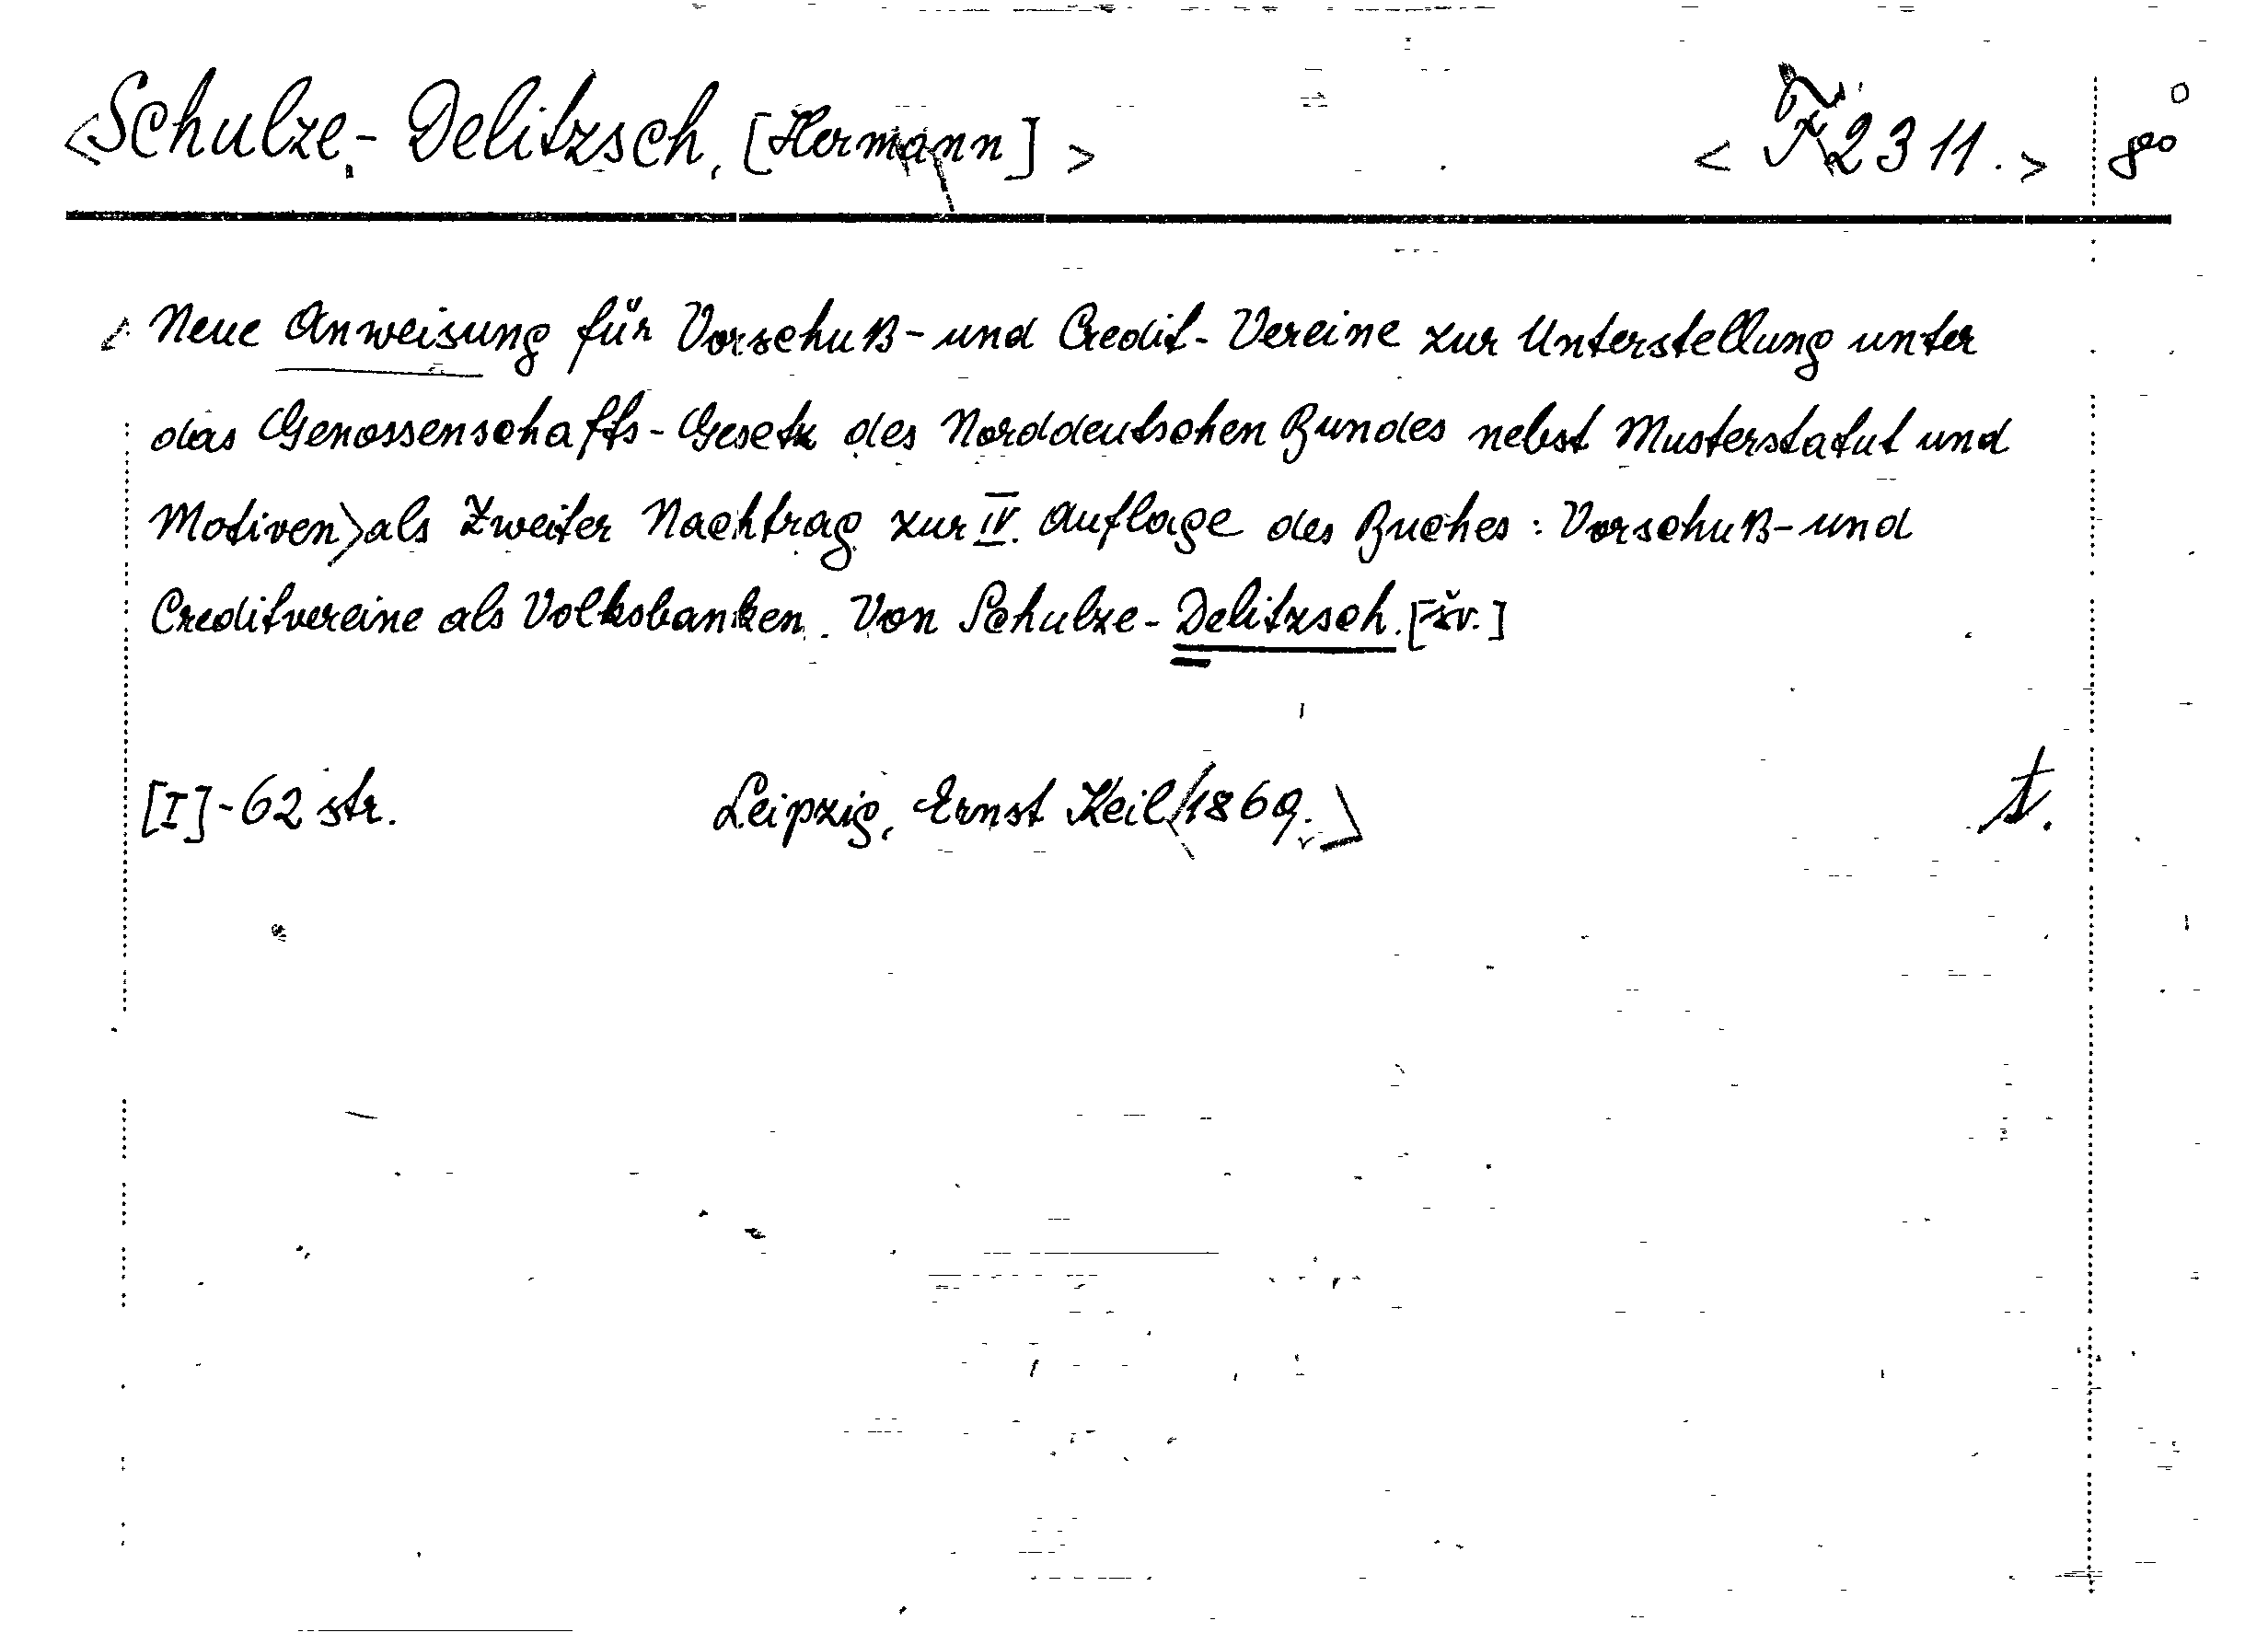 <Schulze,- Delitzsch, [Hermann]> <F 2311.> 8°
Neue Anweisung für Vorschuß- und Credit-Vereine zur Unterstellung unter
das Genossenschafts-Gesetz des Norddeutschen Bundes nebst Musterstatut und
Motiven> als Zweiter Nachtrag zur IV. Auflage des Buches: Vorschuß- und
Creditvereine als Volksbanken. Von Schulze-Delitzsch. [šv.]
[I]-62 str. Leipzig, Ernst Keil, 1869.> t.